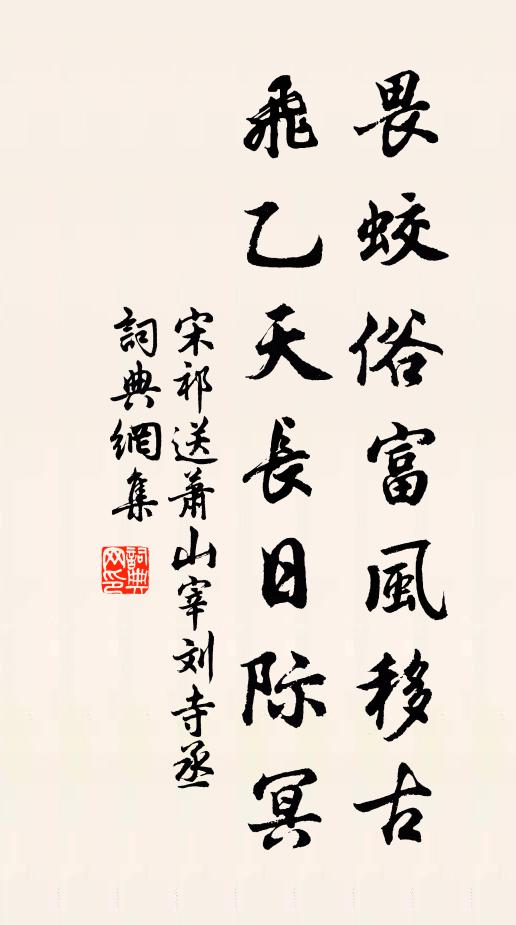 畏蛟俗富風移古
飛乙天長日际冥
宋祁送蕭山宰刘寺丞
詞典網集
詞典网印